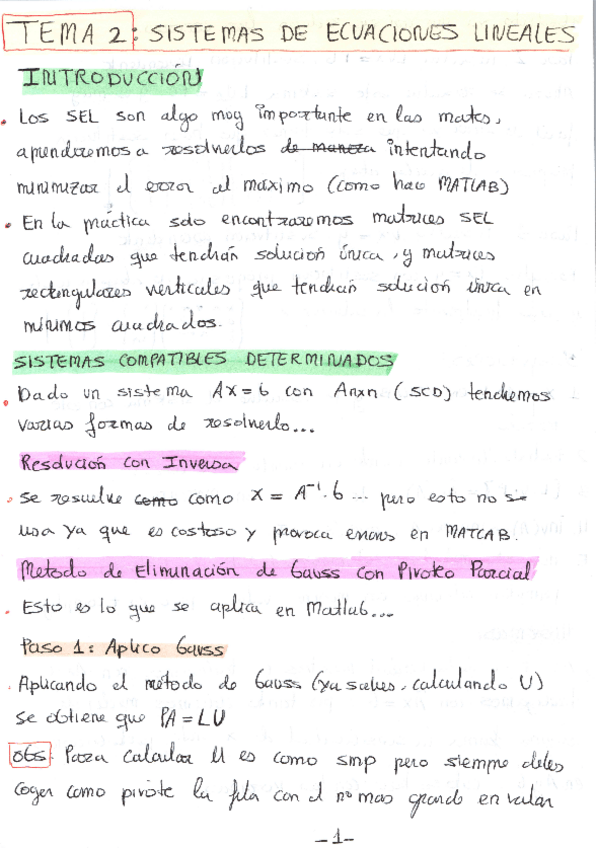 TEMA 2: SISTEMAS DE ECUACIONES LINEALES
INTRODUCCIÓN
. Los SEL son algo muy importante en las mates,
aprenderemos a resolverlos de manera intentando
minimizar el error al máximo (como hace MATLAB)
. En la práctica solo encontraremos matrices SEL
cuadradas que tendrán solución única, y matrices
rectangulares verticales que tendrán solución única en
mínimos cuadrados.
SISTEMAS COMPATIBLES DETERMINADOS
. Dado un sistema Ax=b con Anxn (SCD) tendremos
varias formas de resolverlo...
Resolución con Inversa
. Se resuelve como como X = A⁻¹·b ... pero esto no se
usa ya que es costoso y provoca errores en MATLAB.
Metodo de Eliminación de Gauss con Pivoteo Parcial
. Esto es lo que se aplica en Matlab...
Paso 1: Aplico Gauss
. Aplicando el método de Gauss (ya sabes, calculando U)
se obtiene que PA = LU
obs. Para calcular U es como smp pero siempre debes
coger como pivote la fila con el no mas grande en valor
-1-